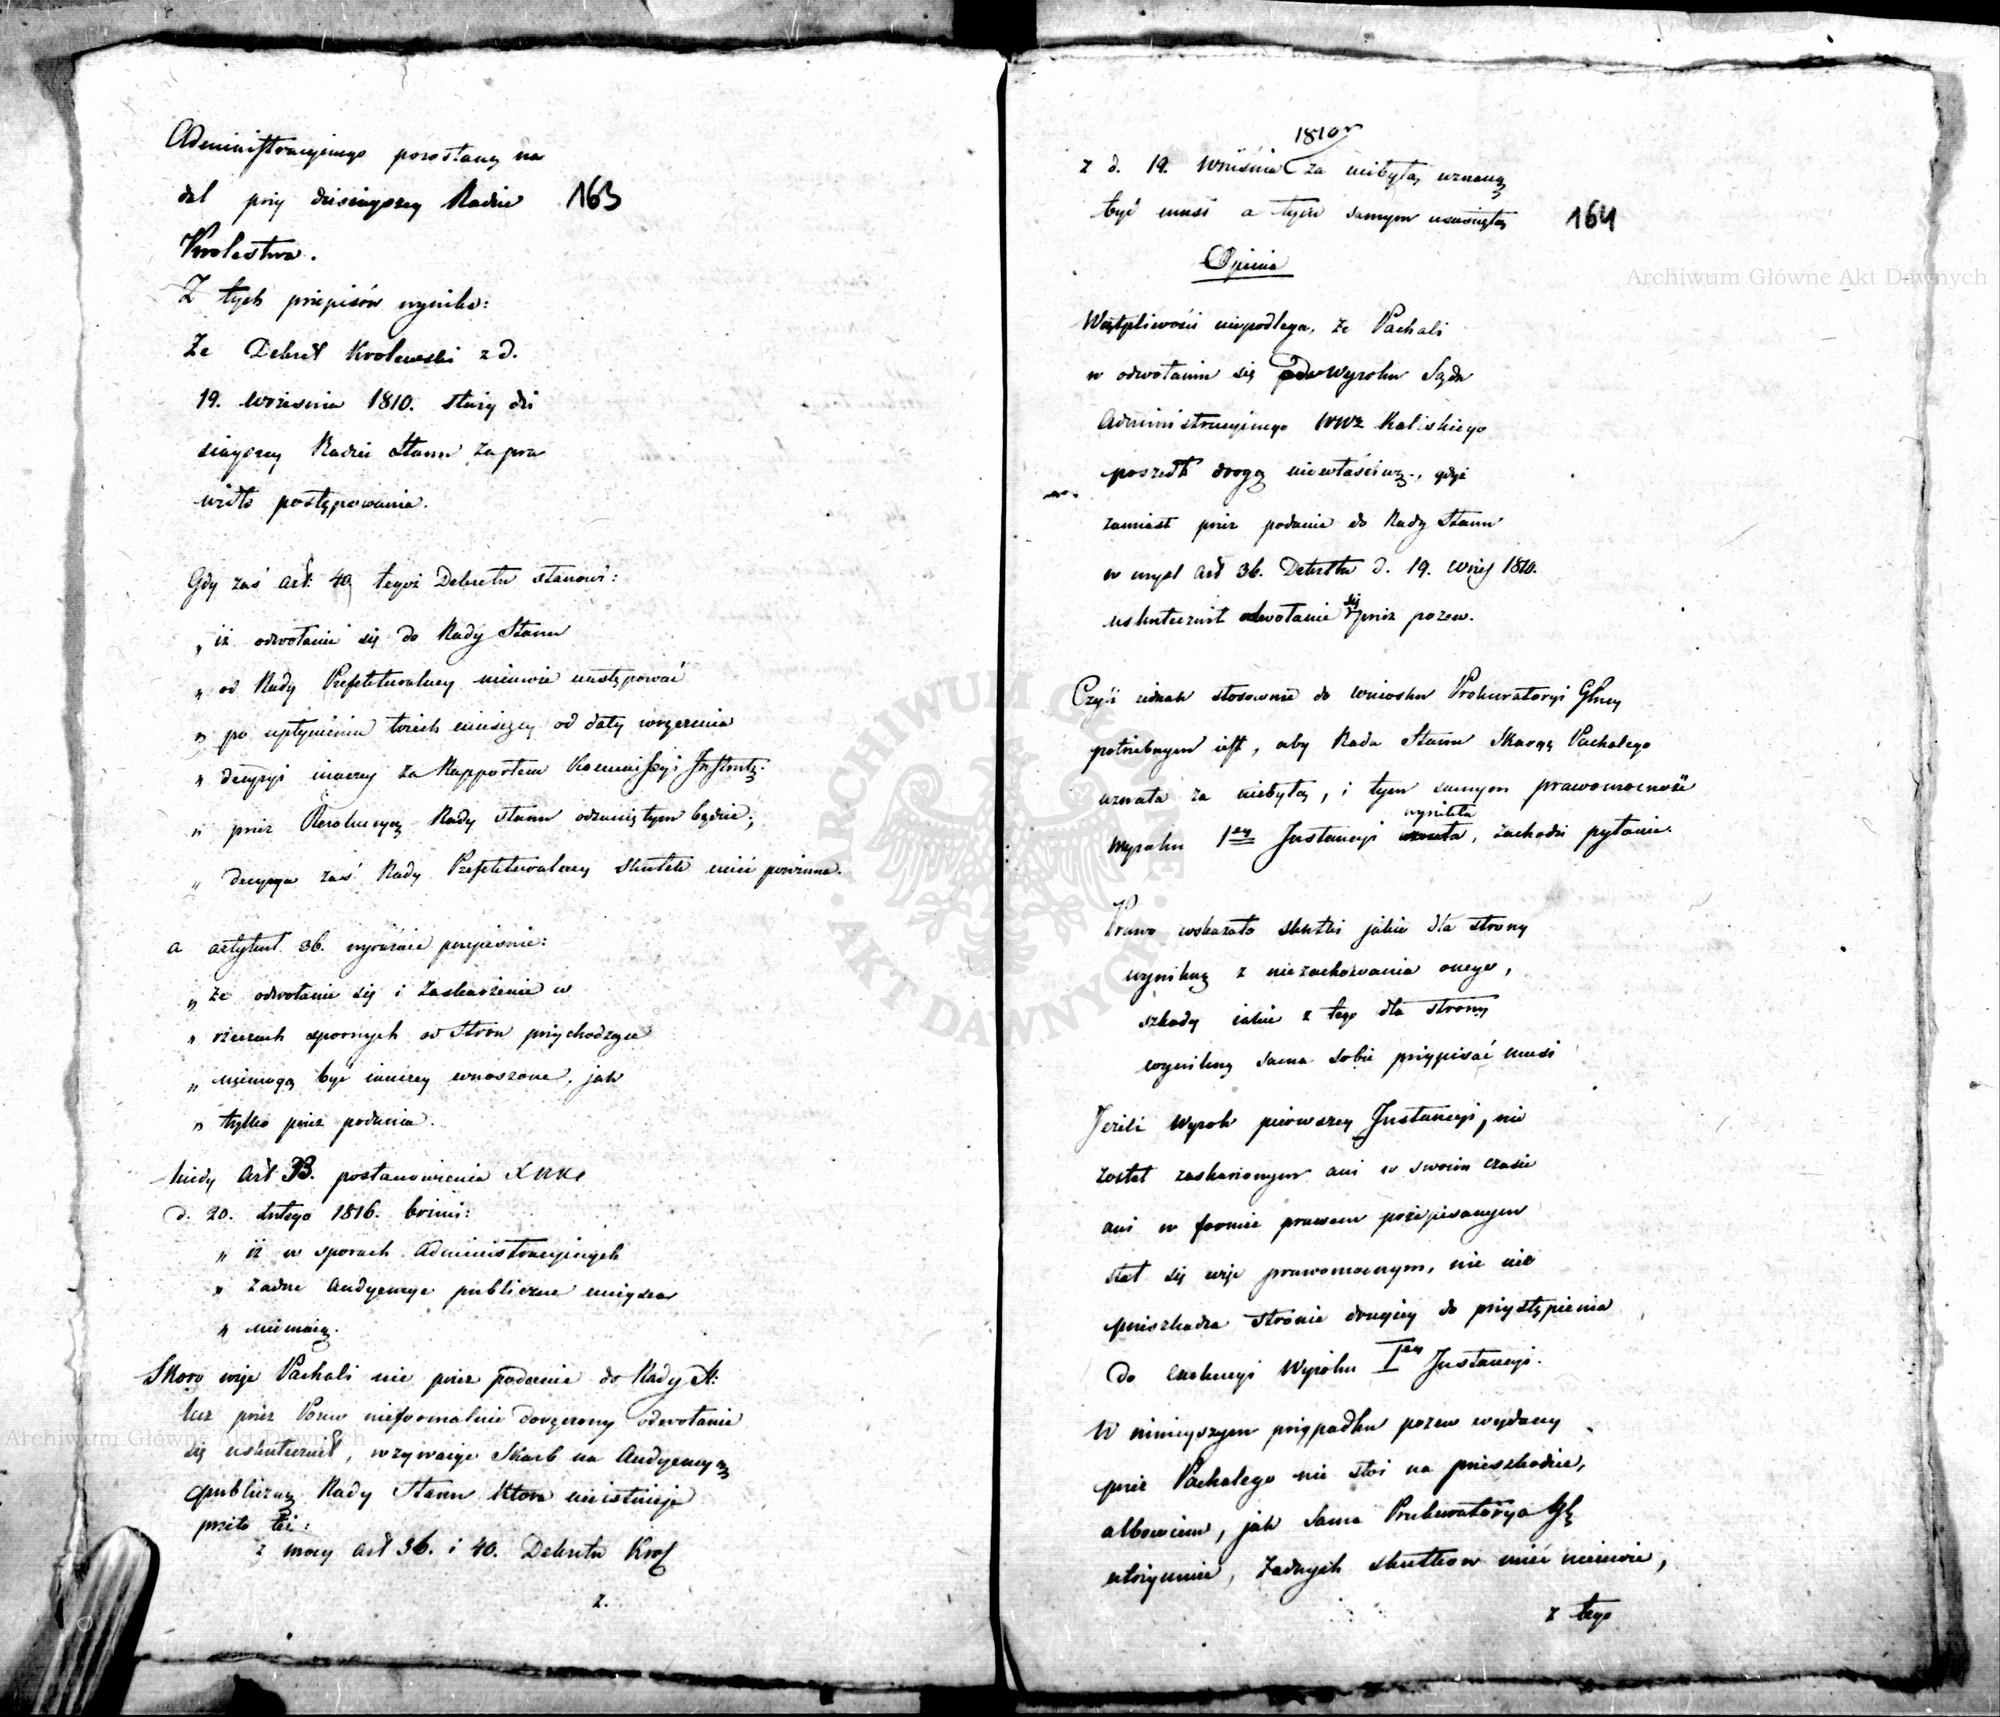 Administracyjnego pozostaną na
dal przy dzisieyszey Radzie
163
Krolestwa.
Z tych przepisów wynika:
Że Dekret Krolewski z d.
19. Września 1810. służy dzi
sieyszey Radzie Stanu za pra
widło postępowania.
Gdy zaś art: 40 tegoż Dekretu stanowi:
„ iż odwołanie się do Rady Stanu
„ od Rady Prefekturalney niemoże następować
„ po upłynieniu trzech miesięcy od daty wręczenia
„ decyzyi inaczey za Rapportem Kommissyi Instrukc:
„ przez Rezolucyą Rady Stanu odrzuconym będzie;
„ decyzya zaś Rady Prefekturalney skutek mieć powinna.
a artykuł 36. wyraźnie przepisuie:
„ że odwołanie się i zaskarżenie w
„ rzeczach spornych od Stron przychodzące
„ niemogą być inaczey wnoszone, jak
„ tylko przez podania.
kiedy art 33. postanowienia XNKr
d. 20. Lutego 1816. brzmi:
„ iż w sporach Administracyjnych
„ żadne Audyencye publiczne mieysca
„ niemaią.
Skoro więc Pachali nie przez podanie do Rady St:
lecz przez Pozew nieformalnie doręczony odwołanie
się uskutecznił, wzywaiąc Skarb na Audyencyą
publiczną Rady Stanu która nieistnieje
przeto też:
z mocy art 36. i 40. Dekretu Krol
z.
1810 r
z d. 19. Września za niebyłą uznaną
być musi a tym samym usuniętą
164
Opinia
Wątpliwości niepodlega, że Pachali
w odwołaniu się od Wyroku Sądu
Administracyjnego WWz Kaliskiego
poszedł drogą niewłaściwą, gdyż
zamiast przez podanie do Rady Stanu
w mysl art 36. Dekretu d. 19. Wrześ 1810.
uskutecznił odwołanie się przez pozew.
Czyli iednak stosownie do wniosku Prokuratoryi Głney
potrzebnym iest, aby Rada Stanu Skargę Pachalego
uznała za niebyłą, i tym samym prawomocność
wyrzekła
Wyroku 1ey Instancyi uznała, zachodzi pytanie.
Prawo wskazało skutki jakie dla strony
wynikną z niezachowania onego,
szkody iakie z tego dla strony
wynikną sama sobie przypisać musi
Jeżeli Wyrok pierwszey Instancyi, nie
został zaskarżonym ani w swoim czasie
ani w formie prawem przepisanym
stał się więc prawomocnym, nic nie
przeszkadza Stronie drugiey do przystąpienia
do exekucyi Wyroku Iey Instancyi.
W ninieyszym przypadku pozew wydany
przez Pachalego nie stoi na przeszkodzie,
albowiem, jak sama Prokuratorya Gł
utrzymuie, żadnych skutkow mieć niemoże,
z tego
Archiwum Główne Akt Dawnych
Archiwum Główne Akt Dawnych
ARCHIWUM GŁÓWNE AKT DAWNYCH